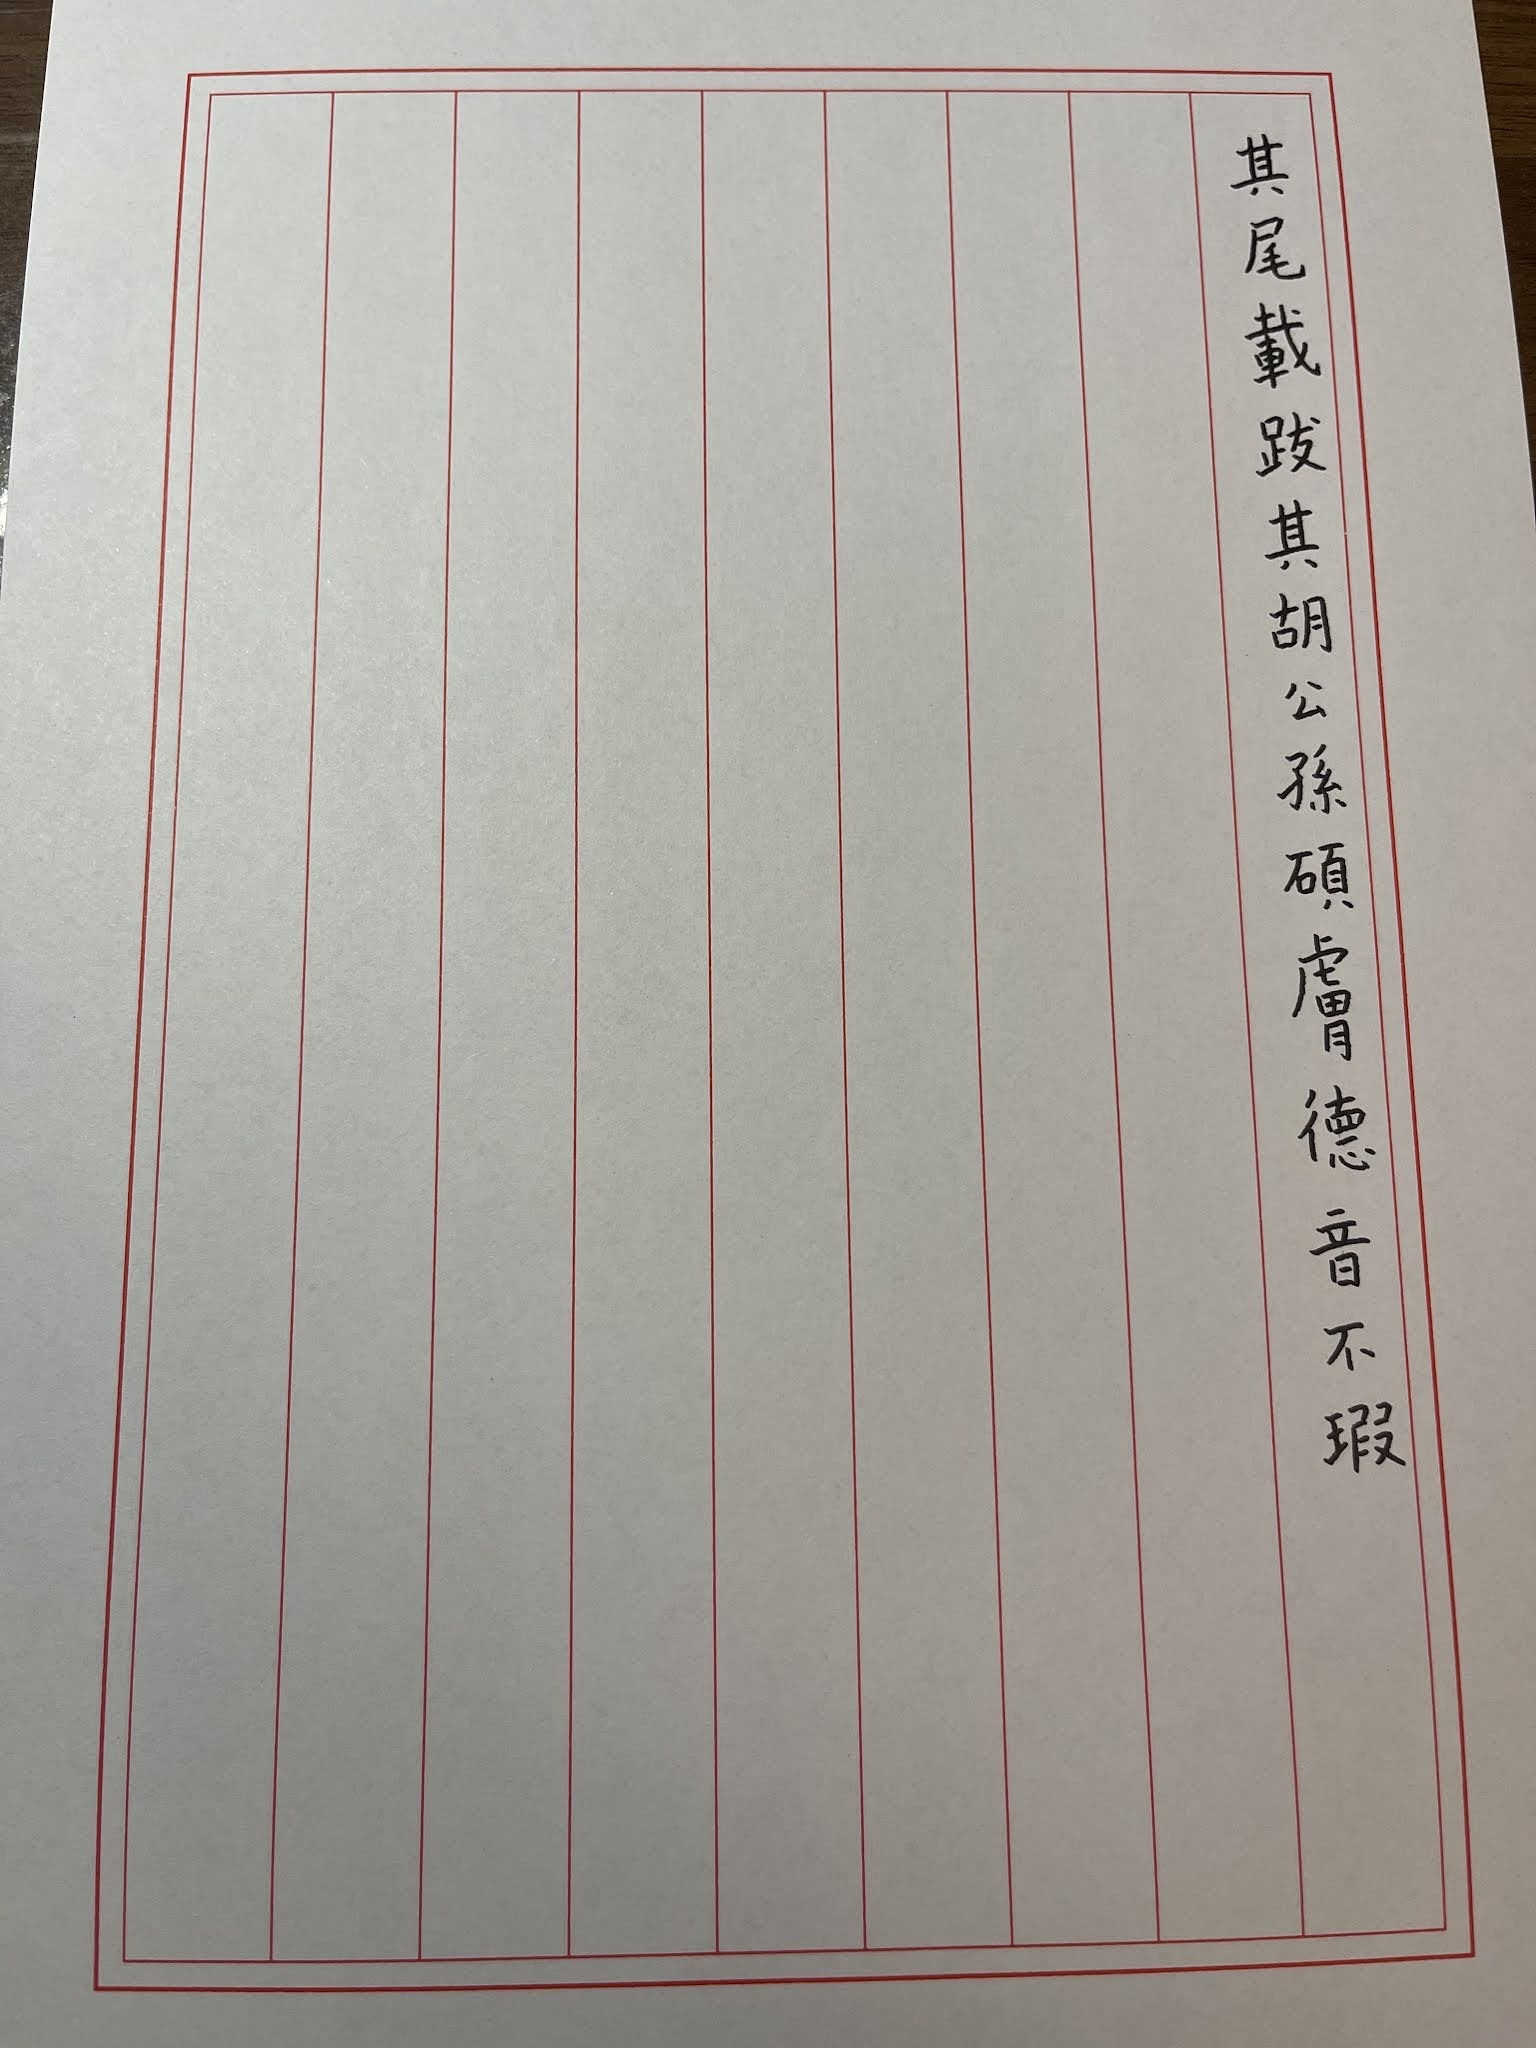 其尾載跋其胡公孫碩膚德音不瑕